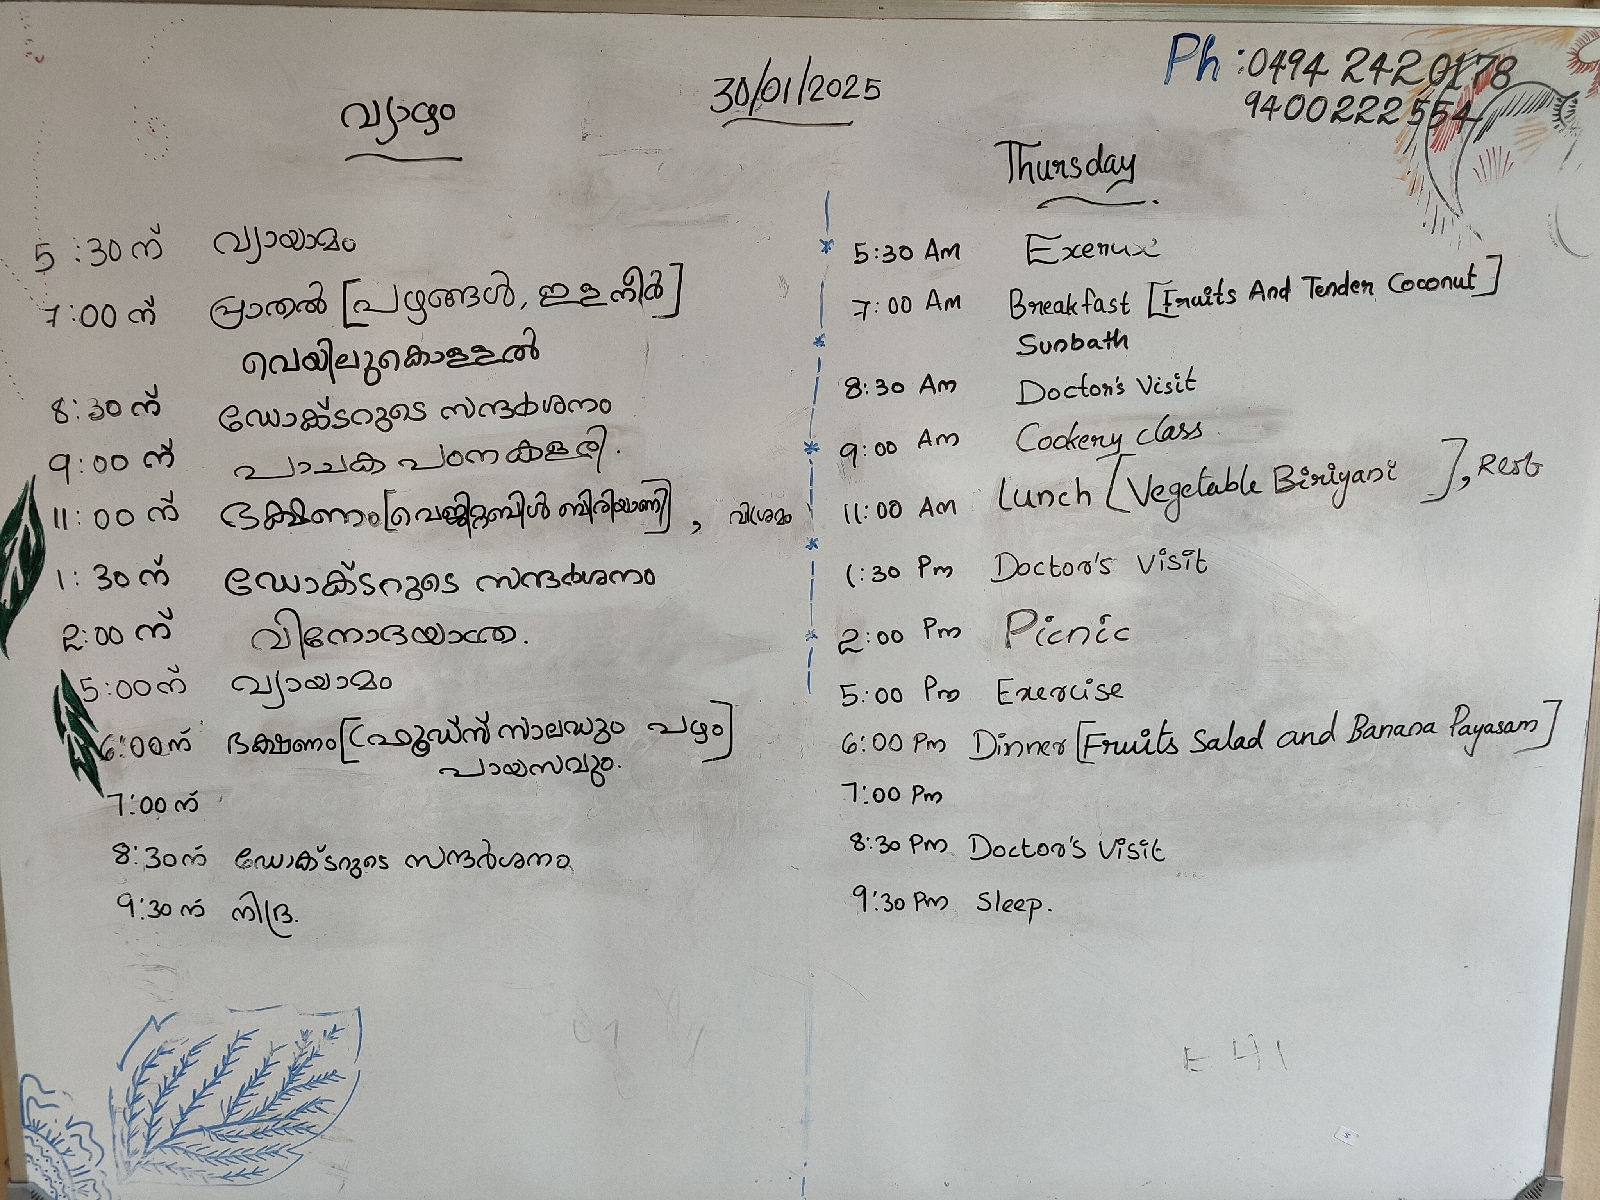 30/01/2025
Ph : 0494 2420178
9400222554
വ്യാഴം
5:30 ന് വ്യായാമം
7:00 ന് പ്രാതൽ [പഴങ്ങൾ, ഇളനീർ]
വെയിലുകൊള്ളൽ
8:30 ന് ഡോക്ടറുടെ സന്ദർശനം
9:00 ന് പാചക പഠന കളരി.
11:00 ന് ഭക്ഷണം [വെജിറ്റബിൾ ബിരിയാണി], വിശ്രമം
1:30 ന് ഡോക്ടറുടെ സന്ദർശനം
2:00 ന് വിനോദയാത്ര.
5:00 ന് വ്യായാമം
6:00 ന് ഭക്ഷണം [ഫ്രൂട്സ് സാലഡും പഴം
പായസവും.]
7:00 ന്
8:30 ന് ഡോക്ടറുടെ സന്ദർശനം
9:30 ന് നിദ്ര.
Thursday
5:30 Am Exercise
7:00 Am Breakfast [Fruits And Tender Coconut]
Sunbath
8:30 Am Doctor's Visit
9:00 Am Cookery class
11:00 Am Lunch [Vegetable Biriyani], Rest
1:30 Pm Doctor's Visit
2:00 Pm Picnic
5:00 Pm Exercise
6:00 Pm Dinner [Fruits Salad and Banana Payasam]
7:00 Pm
8:30 Pm Doctor's Visit
9:30 Pm Sleep.